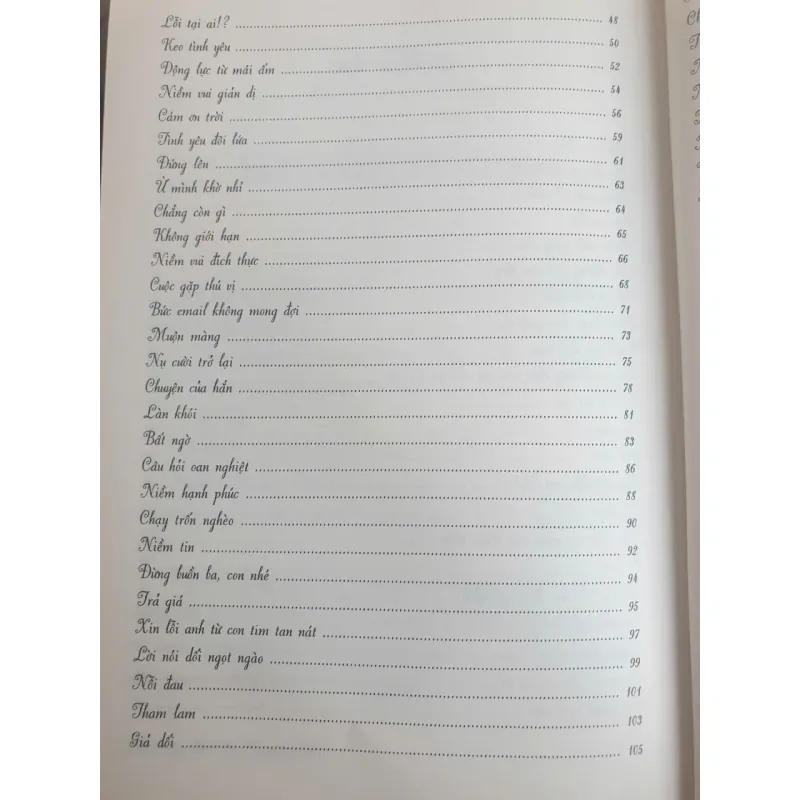 Lỗi tại ai!? 48
Keo tình yêu 50
Động lực từ mái ấm 52
Niềm vui giản dị 54
Cảm ơn trời 56
Tình yêu đôi lứa 59
Đứng lên 61
Ừ mình khờ nhỉ 63
Chẳng còn gì 64
Không giới hạn 65
Niềm vui đích thực 66
Cuộc gặp thú vị 68
Bức email không mong đợi 71
Muộn màng 73
Nụ cười trở lại 75
Chuyện của hắn 78
Làn khói 81
Bất ngờ 83
Câu hỏi oan nghiệt 86
Niềm hạnh phúc 88
Chạy trốn nghèo 90
Niềm tin 92
Đừng buồn ba, con nhé 94
Trả giá 95
Xin lỗi anh từ con tim tan nát 97
Lời nói dối ngọt ngào 99
Nỗi đau 101
Tham lam 103
Giả dối 105